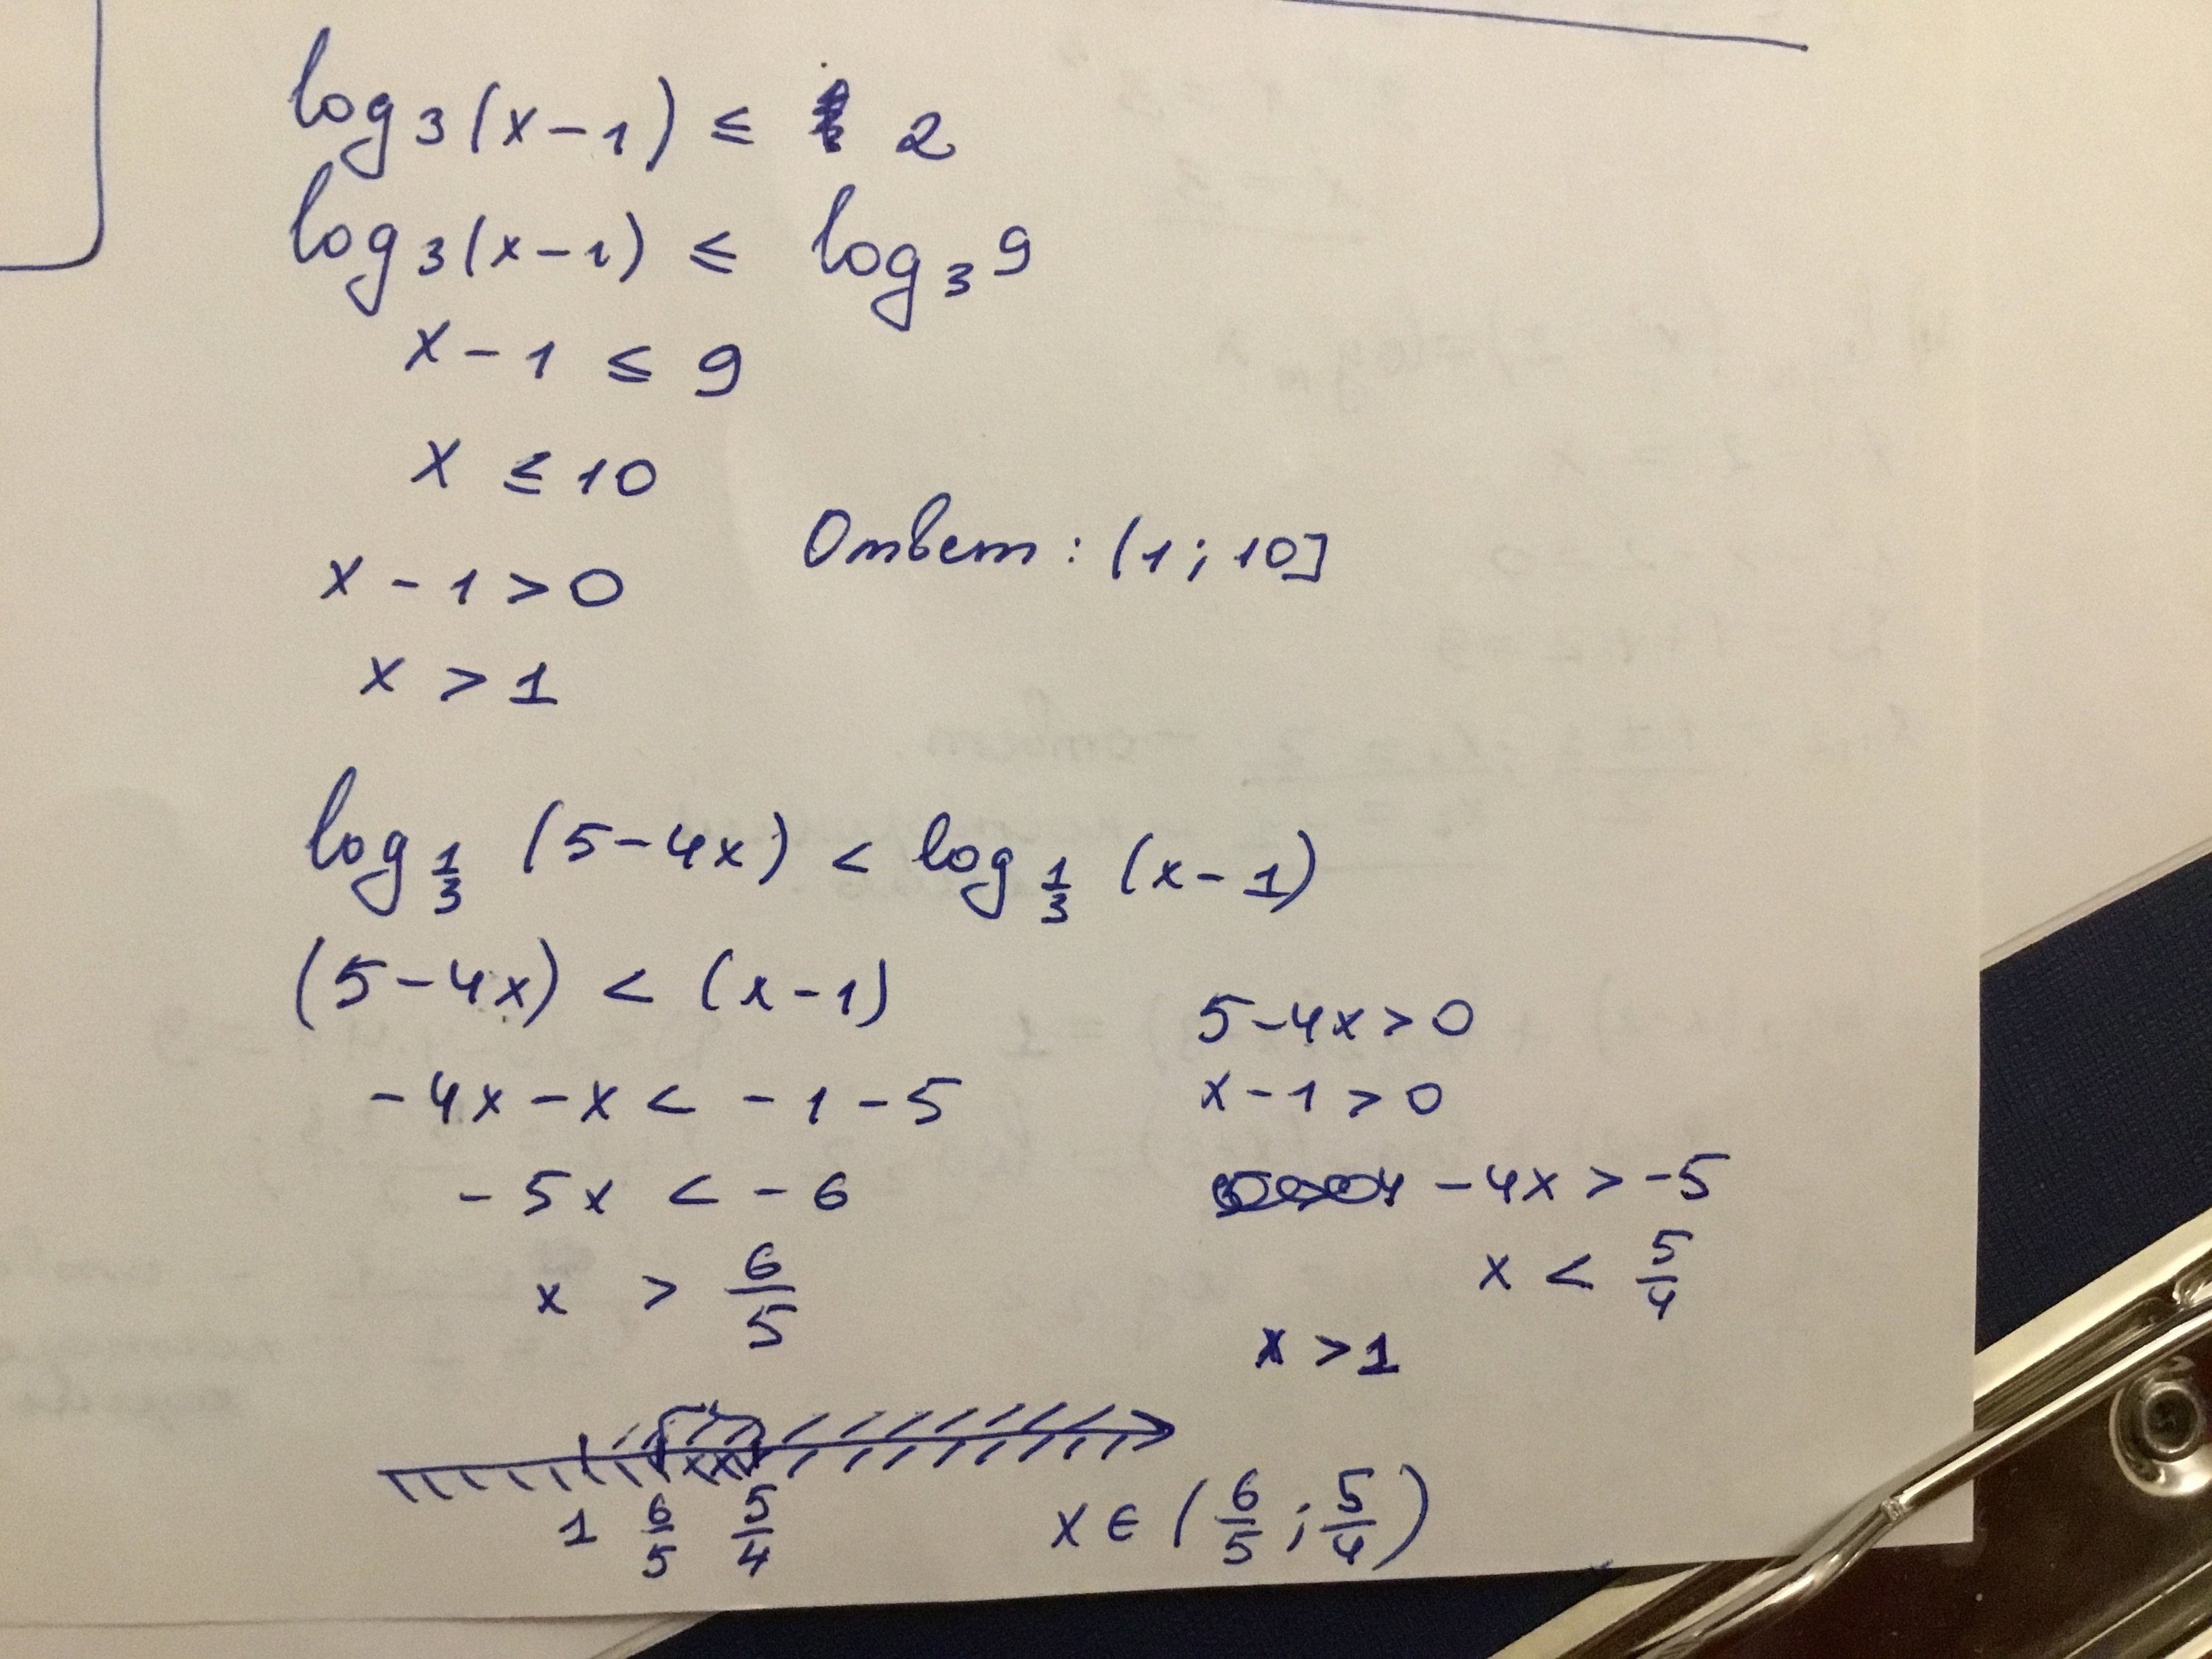 log₃(x-1) ≤ 2
log₃(x-1) ≤ log₃9
x-1 ≤ 9
x ≤ 10
x-1>0
Ответ: (1; 10]
x > 1
log_{1/3} (5-4x) < log_{1/3} (x-1)
(5-4x) < (x-1)
-4x-x < -1-5
-5x < -6
x > 6/5
5-4x>0
x-1>0
-4x>-5
x < 5/4
x >1
1 6/5 5/4
x ∈ (6/5; 5/4)